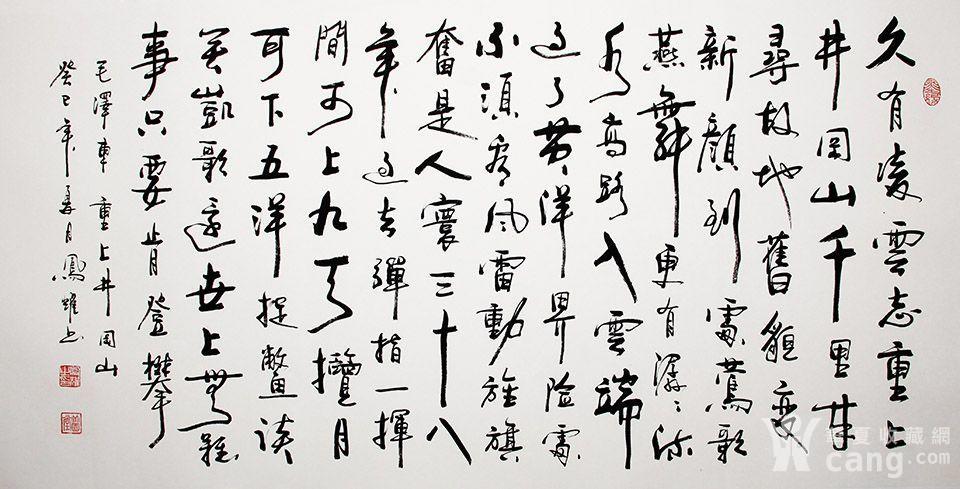 久有凌雲志重上
井岡山千里來
尋故地舊貌變
新顏到處鶯歌
燕舞更有潺潺流
水高路入雲端
過了黄洋界險處
不須看風雷動旌旗
奮是人寰三十八
年過去彈指一揮
間可上九天攬月
可下五洋捉鱉談
笑凱歌還世上無難
事只要肯登攀
毛澤東 重上井岡山
癸巳年夏月鳳書
華夏收藏網
cang.com